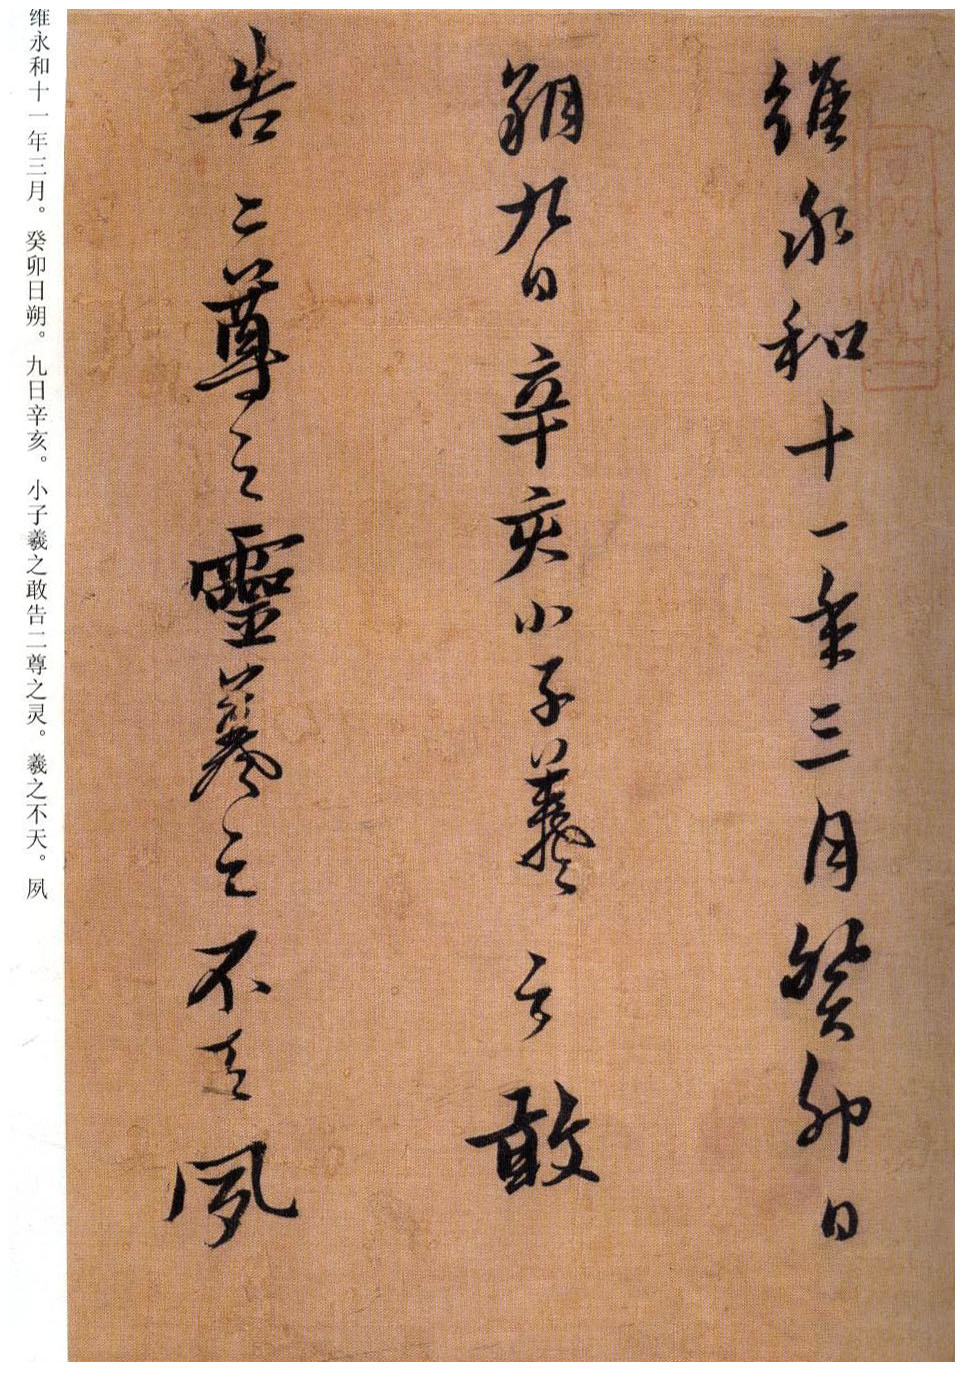 維永和十一年三月癸卯日
朔九日辛亥小子羲之敢
告二尊之靈羲之不天夙
维永和十一年三月。癸卯日朔。九日辛亥。小子羲之敢告二尊之灵。羲之不天。夙